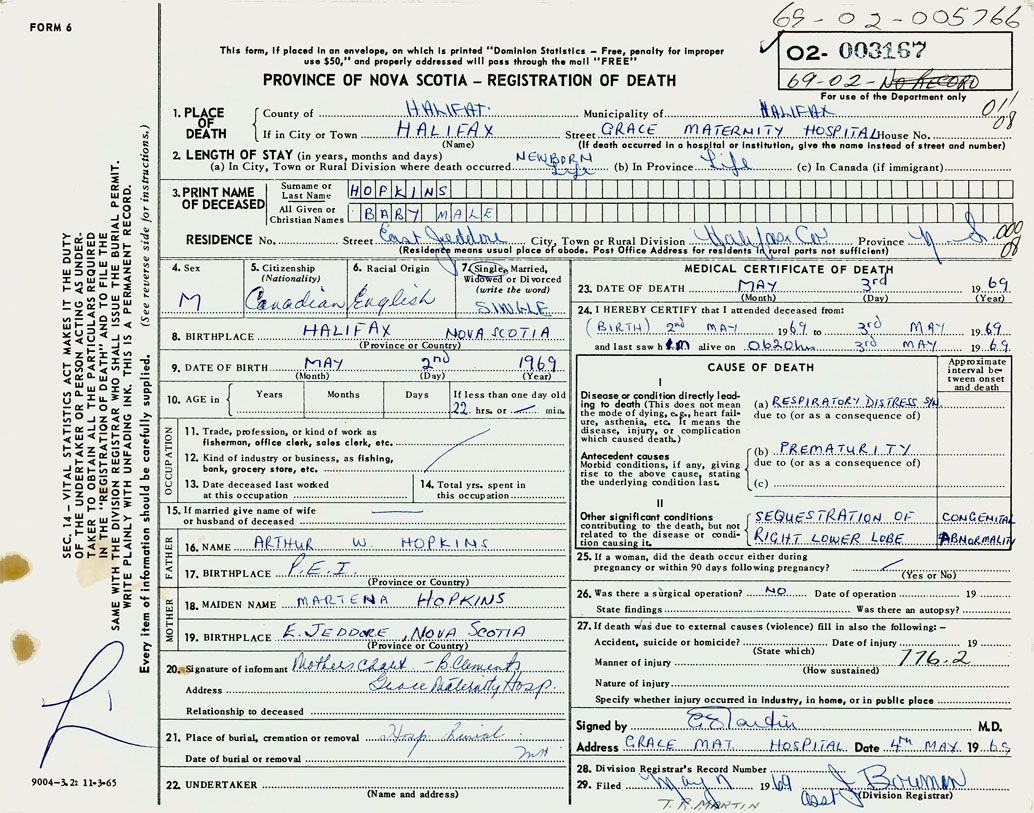 FORM 6
69-02-005766
This form, if placed in an envelope, on which is printed "Dominion Statistics – Free, penalty for improper
use $50," and properly addressed will pass through the mail "FREE"
02- 003167
69-02- NO RECORD
For use of the Department only
PROVINCE OF NOVA SCOTIA – REGISTRATION OF DEATH
011
08
1. PLACE OF DEATH
County of HALIFAX Municipality of HALIFAX
If in City or Town HALIFAX Street GRACE MATERNITY HOSPITAL House No.
(Name) (If death occurred in a hospital or institution, give the name instead of street and number)
2. LENGTH OF STAY (in years, months and days) NEWBORN
(a) In City, Town or Rural Division where death occurred Life (b) In Province Life (c) In Canada (if immigrant)
3. PRINT NAME OF DECEASED
Surname or Last Name HOPKINS
All Given or Christian Names BABY MALE
000
08
RESIDENCE No. Street East Jeddore City, Town or Rural Division Halifax Co Province N.S.
(Residence means usual place of abode. Post Office Address for residents in rural parts not sufficient)
4. Sex
M
5. Citizenship
(Nationality)
Canadian
6. Racial Origin
English
7. Single, Married,
Widowed or Divorced
(write the word)
SINGLE
8. BIRTHPLACE HALIFAX NOVA SCOTIA
(Province or Country)
9. DATE OF BIRTH MAY 2nd 1969
(Month) (Day) (Year)
10. AGE in Years Months Days If less than one day old
22 hrs. or min.
OCCUPATION
11. Trade, profession, or kind of work as
fisherman, office clerk, sales clerk, etc.
12. Kind of industry or business, as fishing,
bank, grocery store, etc.
13. Date deceased last worked
at this occupation
14. Total yrs. spent in
this occupation
15. If married give name of wife
or husband of deceased
FATHER
16. NAME ARTHUR W. HOPKINS
17. BIRTHPLACE P.E.I.
(Province or Country)
MOTHER
18. MAIDEN NAME MARTENA HOPKINS
19. BIRTHPLACE E. JEDDORE, NOVA SCOTIA
(Province or Country)
20. Signature of informant Mothers Chart – B Clements
Address Grace Maternity Hosp.
Relationship to deceased
21. Place of burial, cremation or removal Hosp. Burial
Date of burial or removal
22. UNDERTAKER
(Name and address)
MEDICAL CERTIFICATE OF DEATH
23. DATE OF DEATH MAY 3rd 1969
(Month) (Day) (Year)
24. I HEREBY CERTIFY that I attended deceased from:
(BIRTH) 2nd MAY 1969 to 3rd MAY 1969
and last saw him alive on 0620hrs 3rd MAY 1969
CAUSE OF DEATH
Approximate interval between onset and death
I
Disease or condition directly leading to death (This does not mean
the mode of dying, e.g., heart failure, asthenia, etc. It means the
disease, injury, or complication
which caused death.)
(a) RESPIRATORY DISTRESS
due to (or as a consequence of)
Antecedent causes
Morbid conditions, if any, giving
rise to the above cause, stating
the underlying condition last.
(b) PREMATURITY
due to (or as a consequence of)
(c)
II
Other significant conditions
contributing to the death, but not
related to the disease or condition causing it.
SEQUESTRATION OF CONGENITAL
RIGHT LOWER LOBE ABNORMALITY
25. If a woman, did the death occur either during
pregnancy or within 90 days following pregnancy?
(Yes or No)
26. Was there a surgical operation? NO Date of operation 19
State findings Was there an autopsy?
27. If death was due to external causes (violence) fill in also the following:–
Accident, suicide or homicide? Date of injury 19
(State which)
776.2
Manner of injury
(How sustained)
Nature of injury
Specify whether injury occurred in Industry, in home, or in public place
Signed by M.D.
Address GRACE MAT. HOSPITAL Date 4th MAY 1969
28. Division Registrar's Record Number
29. Filed May 7 1969 J Bowman
asst (Division Registrar)
T. R. MARTIN
SEC. 14 – VITAL STATISTICS ACT MAKES IT THE DUTY
OF THE UNDERTAKER OR PERSON ACTING AS UNDERTAKER TO OBTAIN ALL THE PARTICULARS REQUIRED
IN THE "REGISTRATION OF DEATH" AND TO FILE THE
SAME WITH THE DIVISION REGISTRAR WHO SHALL ISSUE THE BURIAL PERMIT.
WRITE PLAINLY WITH UNFADING INK. THIS IS A PERMANENT RECORD.
Every item of information should be carefully supplied. (See reverse side for instructions.)
9004-3.2: 11-3-65